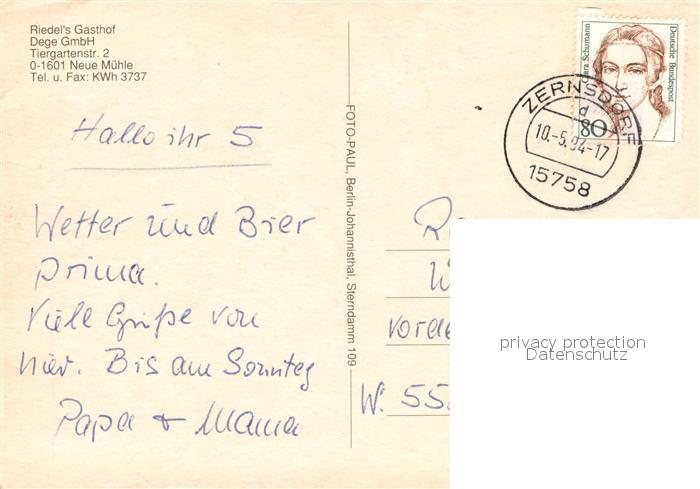 Riedel's Gasthof
Dege GmbH
Tiergartenstr. 2
0-1601 Neue Mühle
Tel. u. Fax: KWh 3737
Hallo ihr 5
Wetter und Bier
prima.
Viele Grüße von
hier. Bis am Sonntag
Papa + Mama
FOTO-PAUL, Berlin-Johannisthal, Sterndamm 109
Clara Schumann
Deutsche Bundespost
80
ZERNSDORF
d
10.-5.94-17
15758
vorde
W. 55
privacy protection
Datenschutz